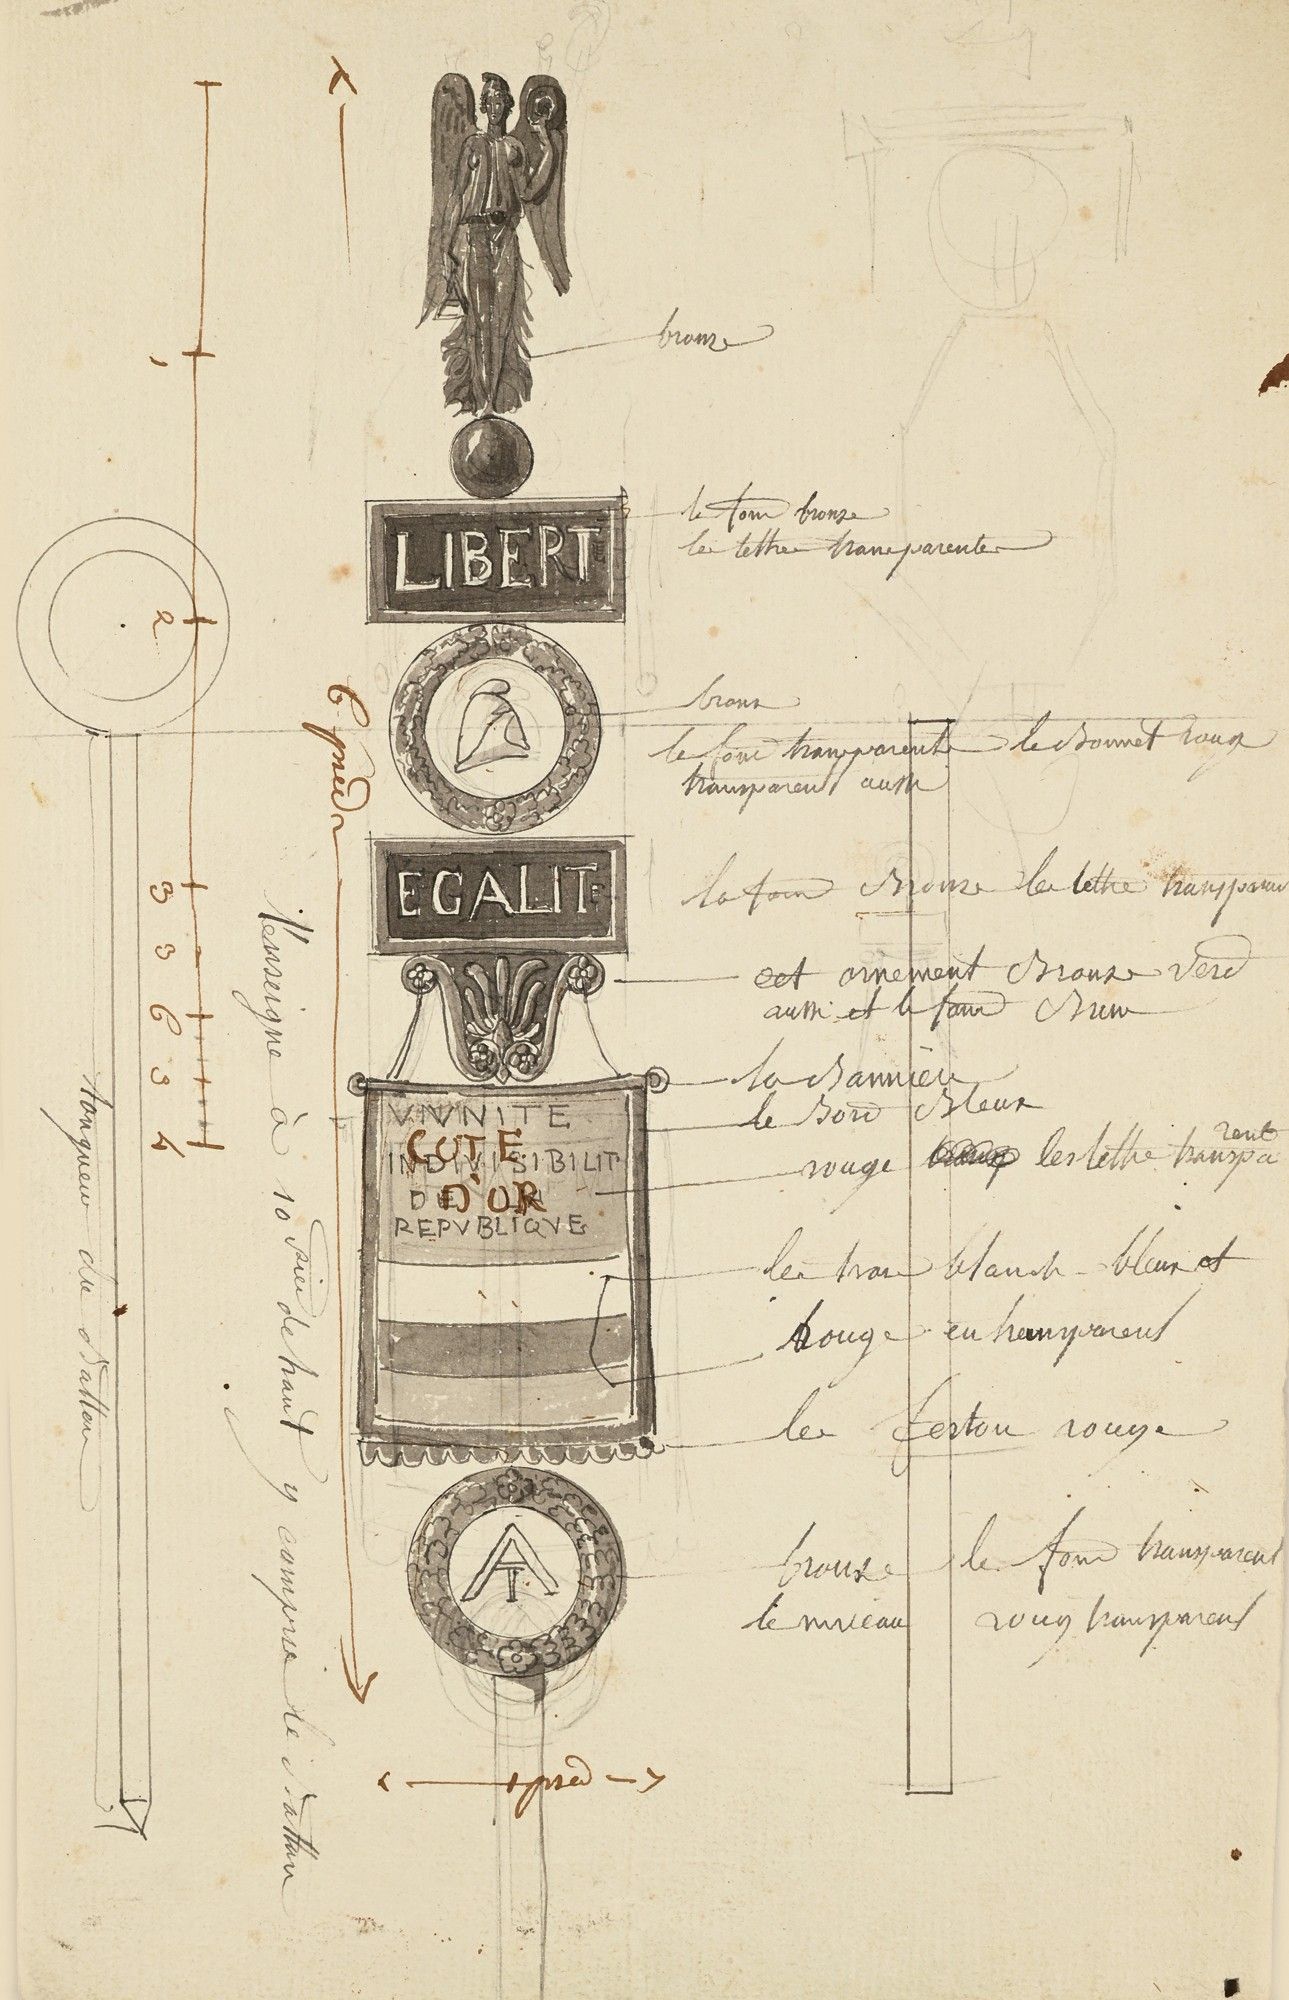 bronze
le fond bronze
les lettre transparente
LIBERTE
bronze
le fond transparente le Bonnet rouge
transparent aussi
6 pied
EGALITE
le fond Bronze les lettre transparent
cet ornement Bronze Verd
aussi et le fond Brun
la Bannière
le Bord Bleux
UNITE
INDIVISIBILIT
DE LA
REPVBLIQVE
COTE
D'OR
rouge les lettre transpa
rent
les trois blanch bleux et
Rouge en transparent
le feston rouge
bronze le fond transparent
le niveau rouge transparent
1 pied
1
2
3
3
6
3
4
l'enseigne à 10 Pied de haut y compris le Batton
Longueur du Batton